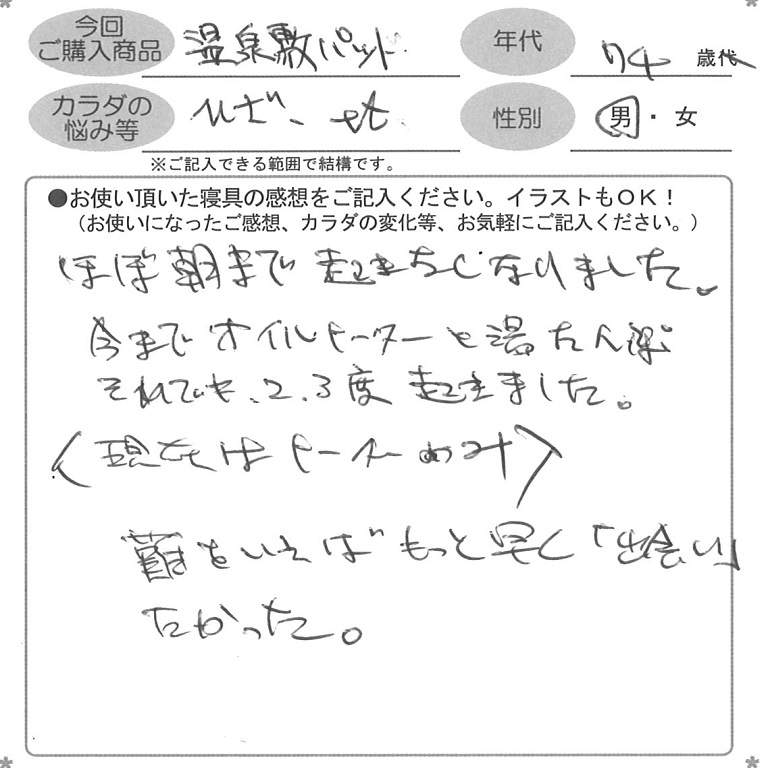 今回
ご購入商品
温泉敷パット
年代
74 歳代
カラダの
悩み等
ひざ、
性別
男・女
※ご記入できる範囲で結構です。
●お使い頂いた寝具の感想をご記入ください。イラストもOK！
（お使いになったご感想、カラダの変化等、お気軽にご記入ください。）
ほぼ朝まで 起きなくなりました。
今まで オイルヒーターと湯たん
それでも、2、3度 起きました。
〈現在はヒーターのみ〉
難をいえば もっと早く「出会い」
たかった。